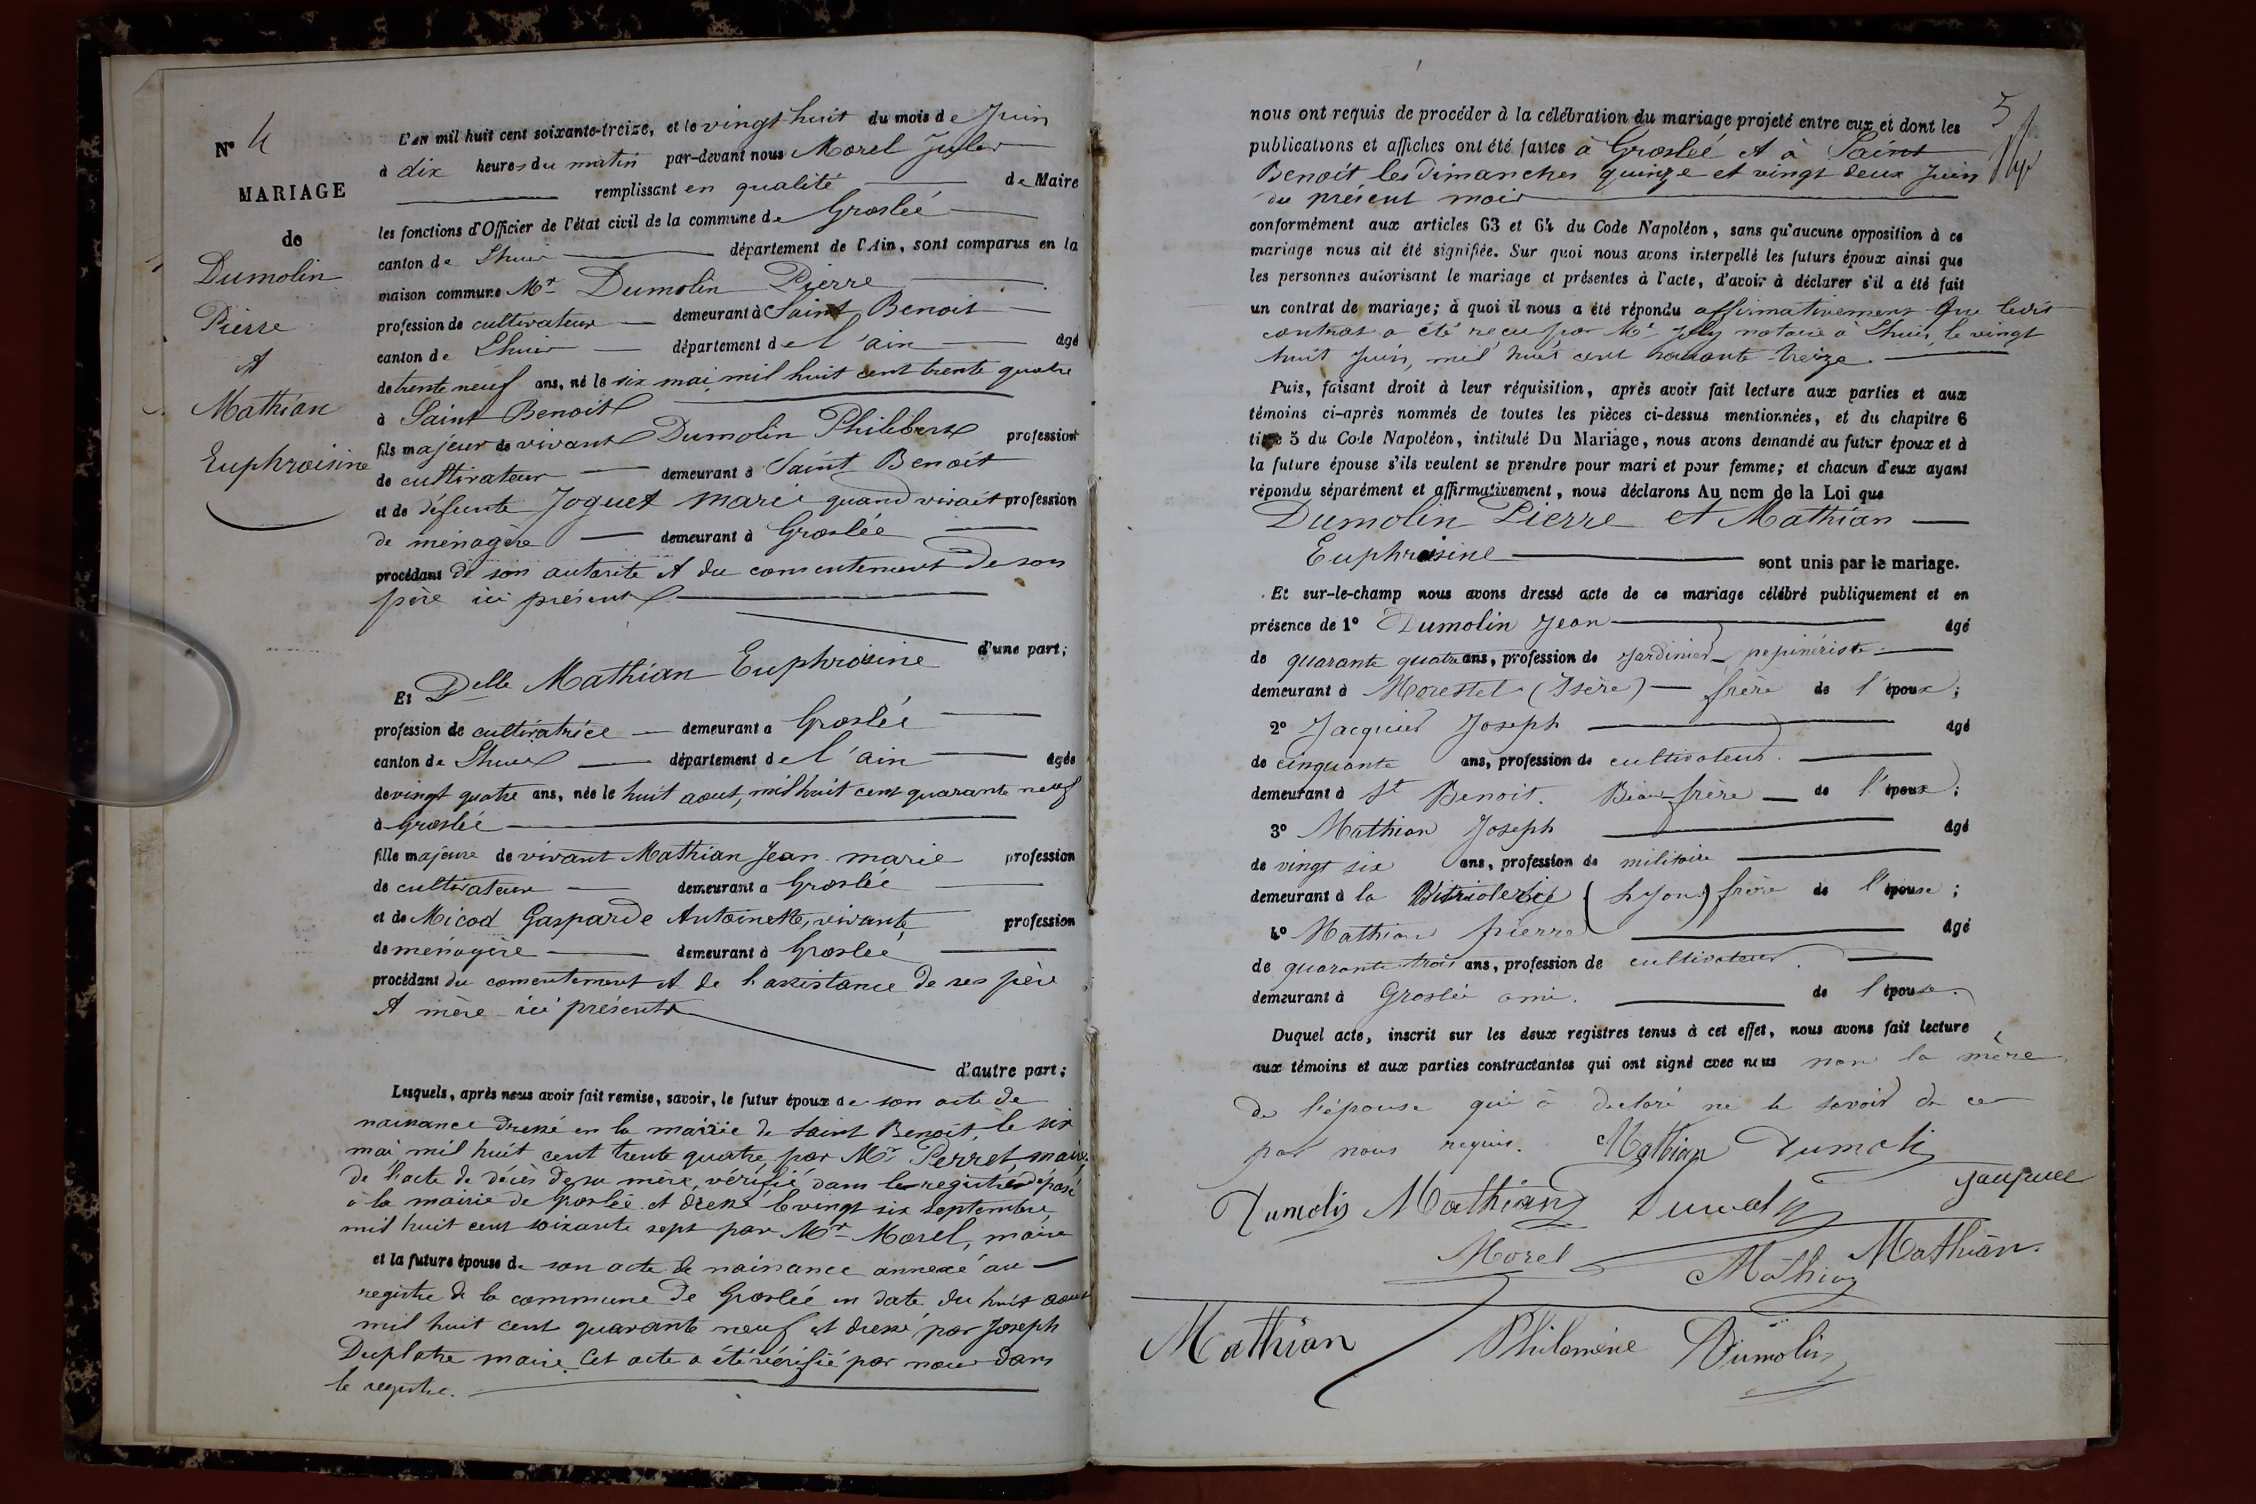 N° 4
MARIAGE
de
Dumolin
Pierre
et
Mathian
Euphroisine
L'an mil huit cent soixante-treize, et le vingt huit du mois de Juin
à dix heures du matin par-devant nous Morel Jules
remplissant en qualité de Maire
les fonctions d'Officier de l'état civil de la commune de Groslée
canton de Lhuis département de l'Ain, sont comparus en la
maison commune Mr Dumolin Pierre
profession de cultivateur demeurant à Saint Benoit
canton de Lhuis département de l'ain âgé
de trente neuf ans, né le six mai mil huit cent trente quatre
à Saint Benoit
fils majeur de vivant Dumolin Philibert profession
de cultivateur demeurant à Saint Benoit
et de défunte Joguet marie quand vivait profession
de ménagère demeurant à Groslée
procédant de son autorité et du consentement de son
père ici présent
d'une part;
Et Delle Mathian Euphroisine
profession de cultivatrice demeurant à Groslée
canton de Lhuis département de l'ain âgée
de vingt quatre ans, née le huit aout, mil huit cent quarante neuf
à Groslée
fille majeure de vivant Mathian Jean marie profession
de cultivateur demeurant à Groslée
et de Micod Gasparde Antoinette, vivante, profession
de ménagère demeurant à Groslée
procédant du consentement et de l'assistance de ses père
et mère ici présents
d'autre part;
Lesquels, après nous avoir fait remise, savoir, le futur époux de son acte de
naissance dressé en la mairie de Saint Benoit, le six
mai mil huit cent trente quatre par Mr Perret, maire
de l'acte de décès de sa mère, vérifié dans le registre déposé
à la mairie de Groslée et dressé le vingt six septembre
mil huit cent soixante sept par Mr Morel, maire
et la future épouse de son acte de naissance annexé au
registre de la commune de Groslée en date du huit aout
mil huit cent quarante neuf et dressé par Joseph
Duplatre maire. Cet acte a été vérifié par nous dans
le registre.
5
nous ont requis de procéder à la célébration du mariage projeté entre eux et dont les
publications et affiches ont été faites à Groslée et à Saint
Benoit les dimanches quinze et vingt deux Juin
du présent mois
conformément aux articles 63 et 64 du Code Napoléon, sans qu'aucune opposition à ce
mariage nous ait été signifiée. Sur quoi nous avons interpellé les futurs époux ainsi que
les personnes autorisant le mariage et présentes à l'acte, d'avoir à déclarer s'il a été fait
un contrat de mariage; à quoi il nous a été répondu affirmativement que ledit
contrat a été reçu par Mr Jolly notaire à Lhuis, le vingt
huit Juin, mil huit cent soixante treize.
Puis, faisant droit à leur réquisition, après avoir fait lecture aux parties et aux
témoins ci-après nommés de toutes les pièces ci-dessus mentionnées, et du chapitre 6
titre 5 du Code Napoléon, intitulé Du Mariage, nous avons demandé au futur époux et à
la future épouse s'ils veulent se prendre pour mari et pour femme; et chacun d'eux ayant
répondu séparément et affirmativement, nous déclarons Au nom de la Loi que
Dumolin Pierre et Mathian
Euphrosine sont unis par le mariage.
Et sur-le-champ nous avons dressé acte de ce mariage célébré publiquement et en
présence de 1° Dumolin Jean âgé
de quarante quatre ans, profession de Jardinier pepinériste
demeurant à Morestel (Isère) frère de l'époux;
2° Jacquier Joseph âgé
de cinquante ans, profession de cultivateur
demeurant à St Benoit. Beau-frère de l'époux;
3° Mathian Joseph âgé
de vingt six ans, profession de militaire
demeurant à la Vitriolerie (Lyon) frère de l'épouse;
4° Mathian pierre âgé
de quarante trois ans, profession de cultivateur.
demeurant à Groslée ami. de l'épouse.
Duquel acte, inscrit sur les deux registres tenus à cet effet, nous avons fait lecture
aux témoins et aux parties contractantes qui ont signé avec nous non la mère
de l'épouse qui a declaré ne le savoir de ce
par nous requis. Mathian Dumolin
Dumolin Mathian Dumolin Jacquier
Morel Mathian Mathian.
Mathian Philomène Dumolin